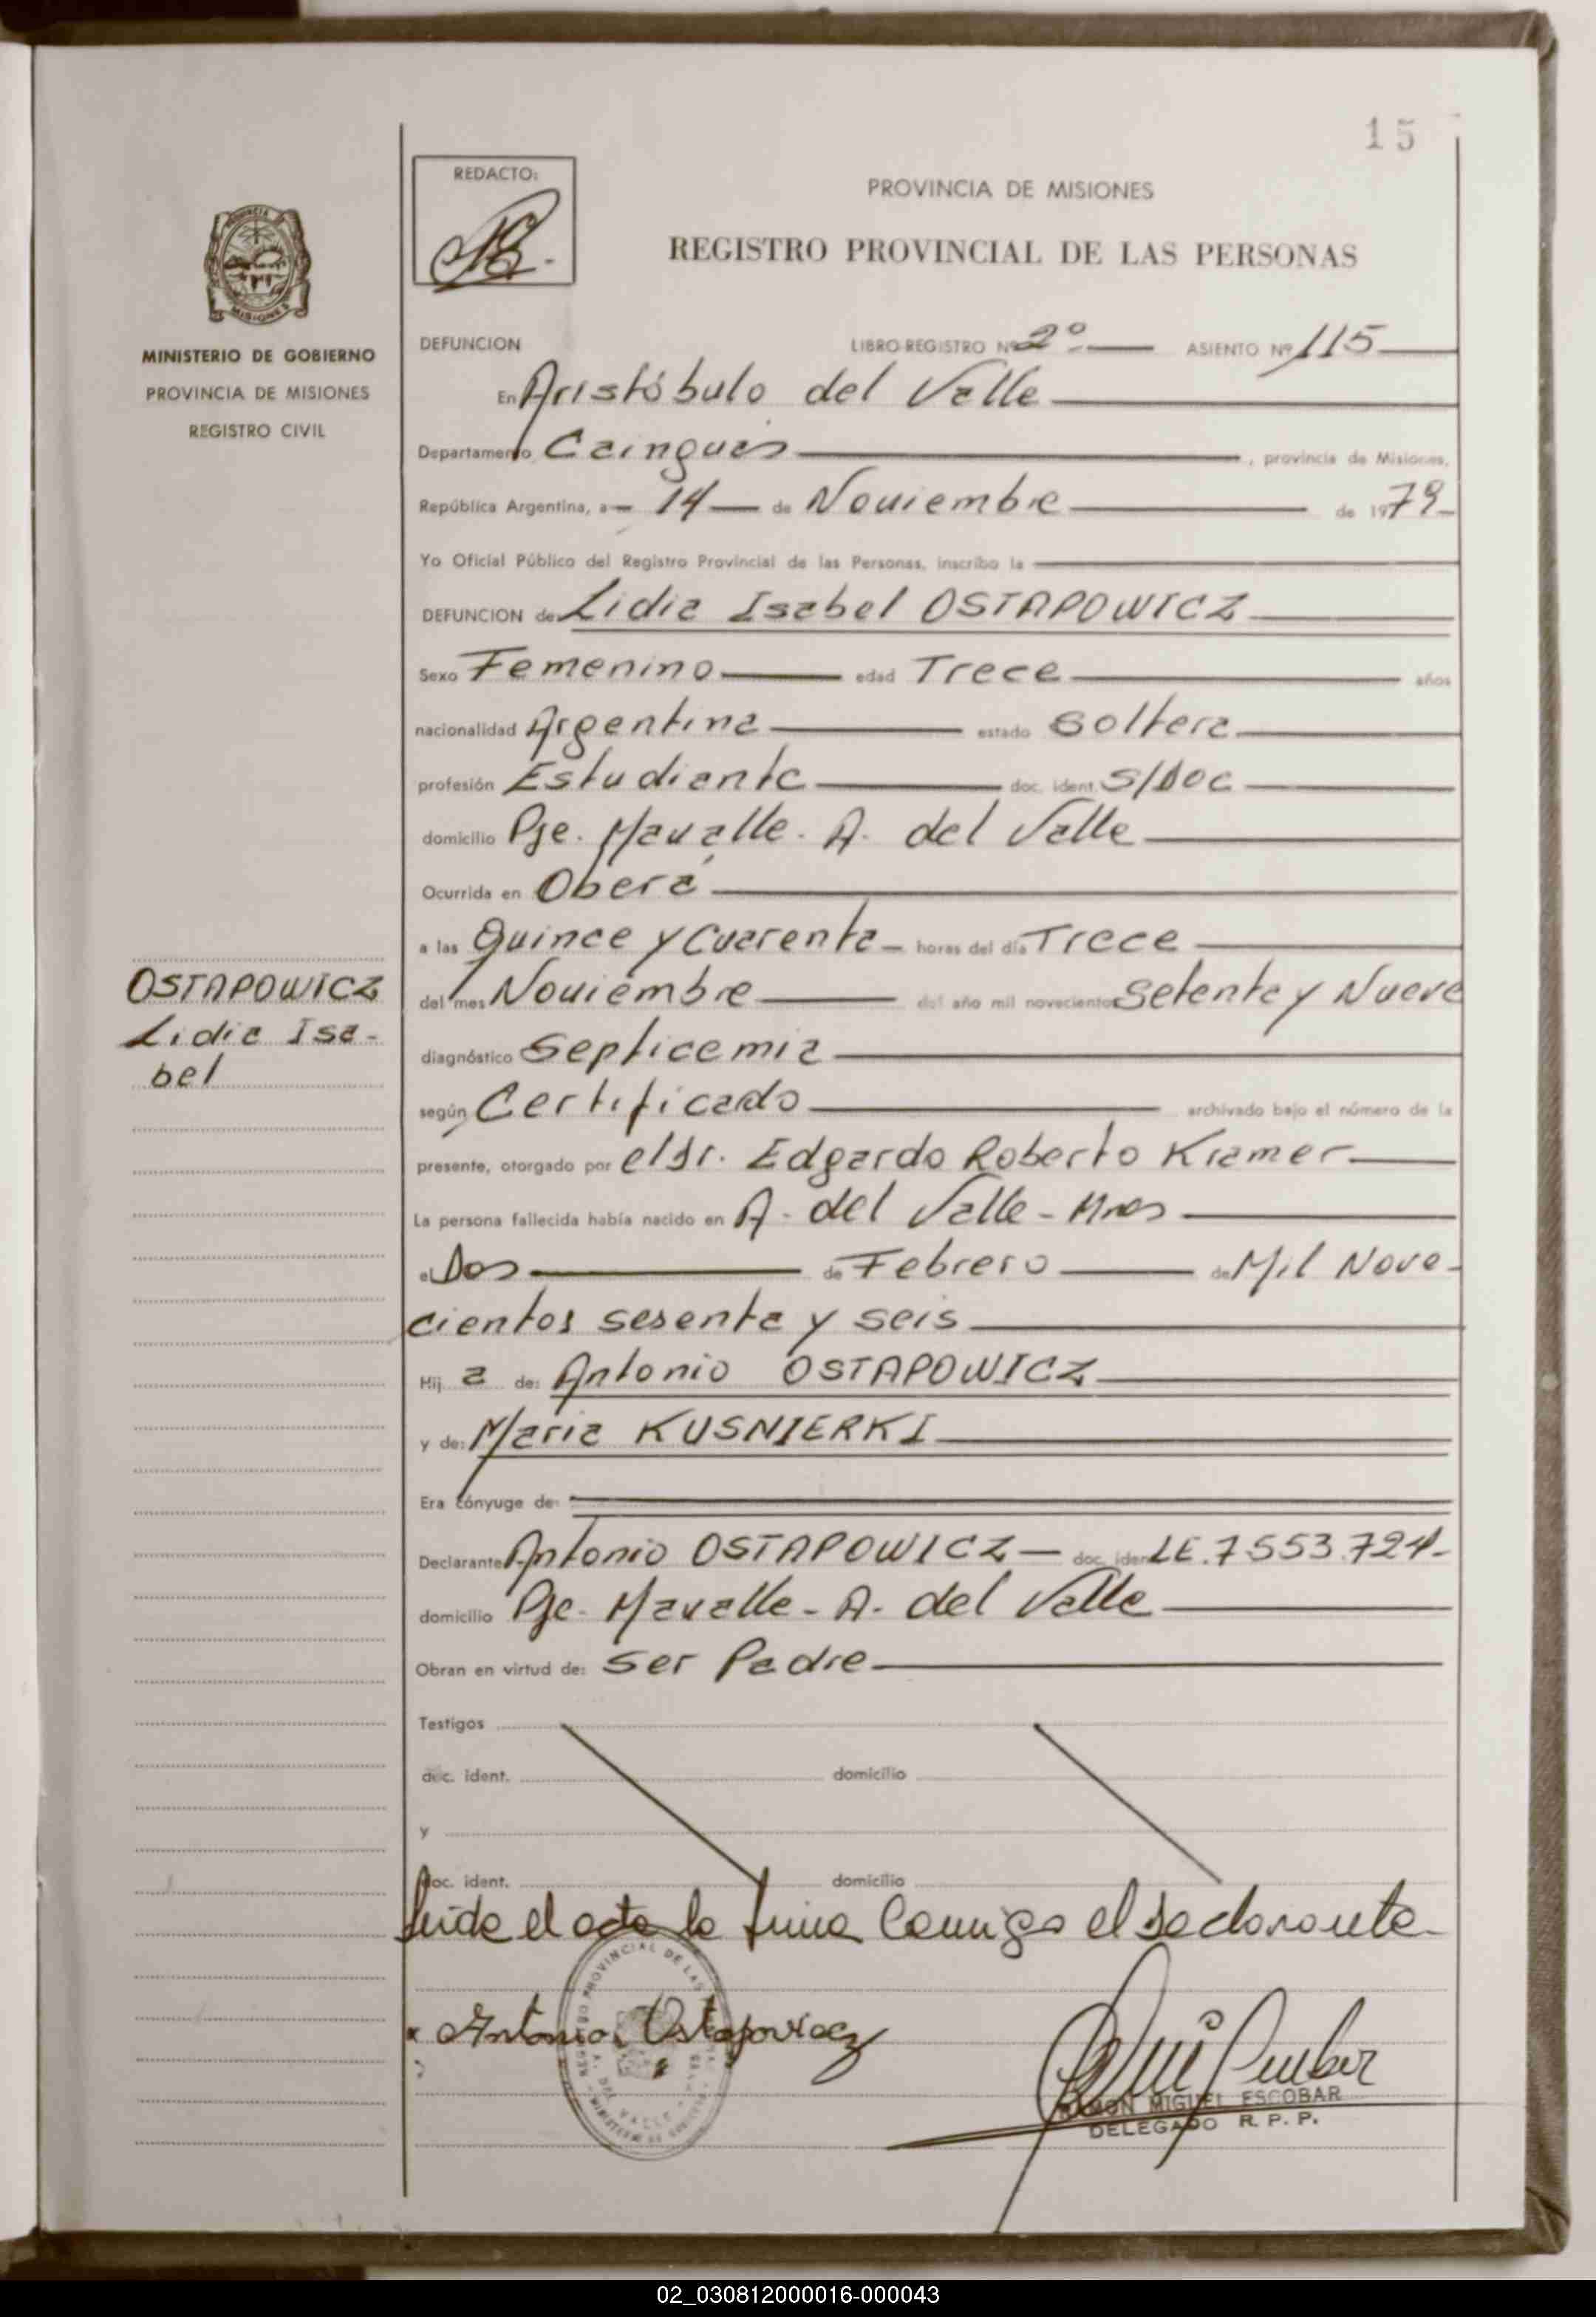 15
REDACTO:
PROVINCIA DE MISIONES
REGISTRO PROVINCIAL DE LAS PERSONAS
PROVINCIA
MISIONES
MINISTERIO DE GOBIERNO
PROVINCIA DE MISIONES
REGISTRO CIVIL
DEFUNCION LIBRO-REGISTRO Nº 2º ASIENTO Nº 115
En Aristóbulo del Valle
Departamento Cainguas, provincia de Misiones,
República Argentina, a 14 de Noviembre de 1979
Yo Oficial Público del Registro Provincial de las Personas, inscribo la
DEFUNCION de Lidia Isabel OSTAPOWICZ
Sexo Femenino edad Trece años
nacionalidad Argentina estado Soltera
profesión Estudiante doc. ident. S/DOC
domicilio Pje. Mavalle. A. del Valle
Ocurrida en Oberá
a las Quince y Cuarenta horas del día Trece
del mes Noviembre del año mil novecientos Setenta y Nueve
OSTAPOWICZ
Lidia Isa-
bel
diagnóstico Septicemia
según Certificado archivado bajo el número de la
presente, otorgado por el Dr. Edgardo Roberto Kramer
La persona fallecida había nacido en A. del Valle - Mnes
el Dos de Febrero de Mil Nove-
cientos sesenta y seis
Hij a de: Antonio OSTAPOWICZ
y de: Maria KUSNIERKI
Era cónyuge de:
Declarante Antonio OSTAPOWICZ doc. iden LE. 7553.724-
domicilio Pje. Mavalle - A. del Valle
Obran en virtud de: Ser Padre
Testigos
doc. ident. domicilio
y
doc. ident. domicilio
Leida el acta la firma Conmigo el declarante
REGISTRO PROVINCIAL DE LAS
Antonio Ostapowicz
RAMON MIGUEL ESCOBAR
DELEGADO R. P. P.
02_030812000016-000043